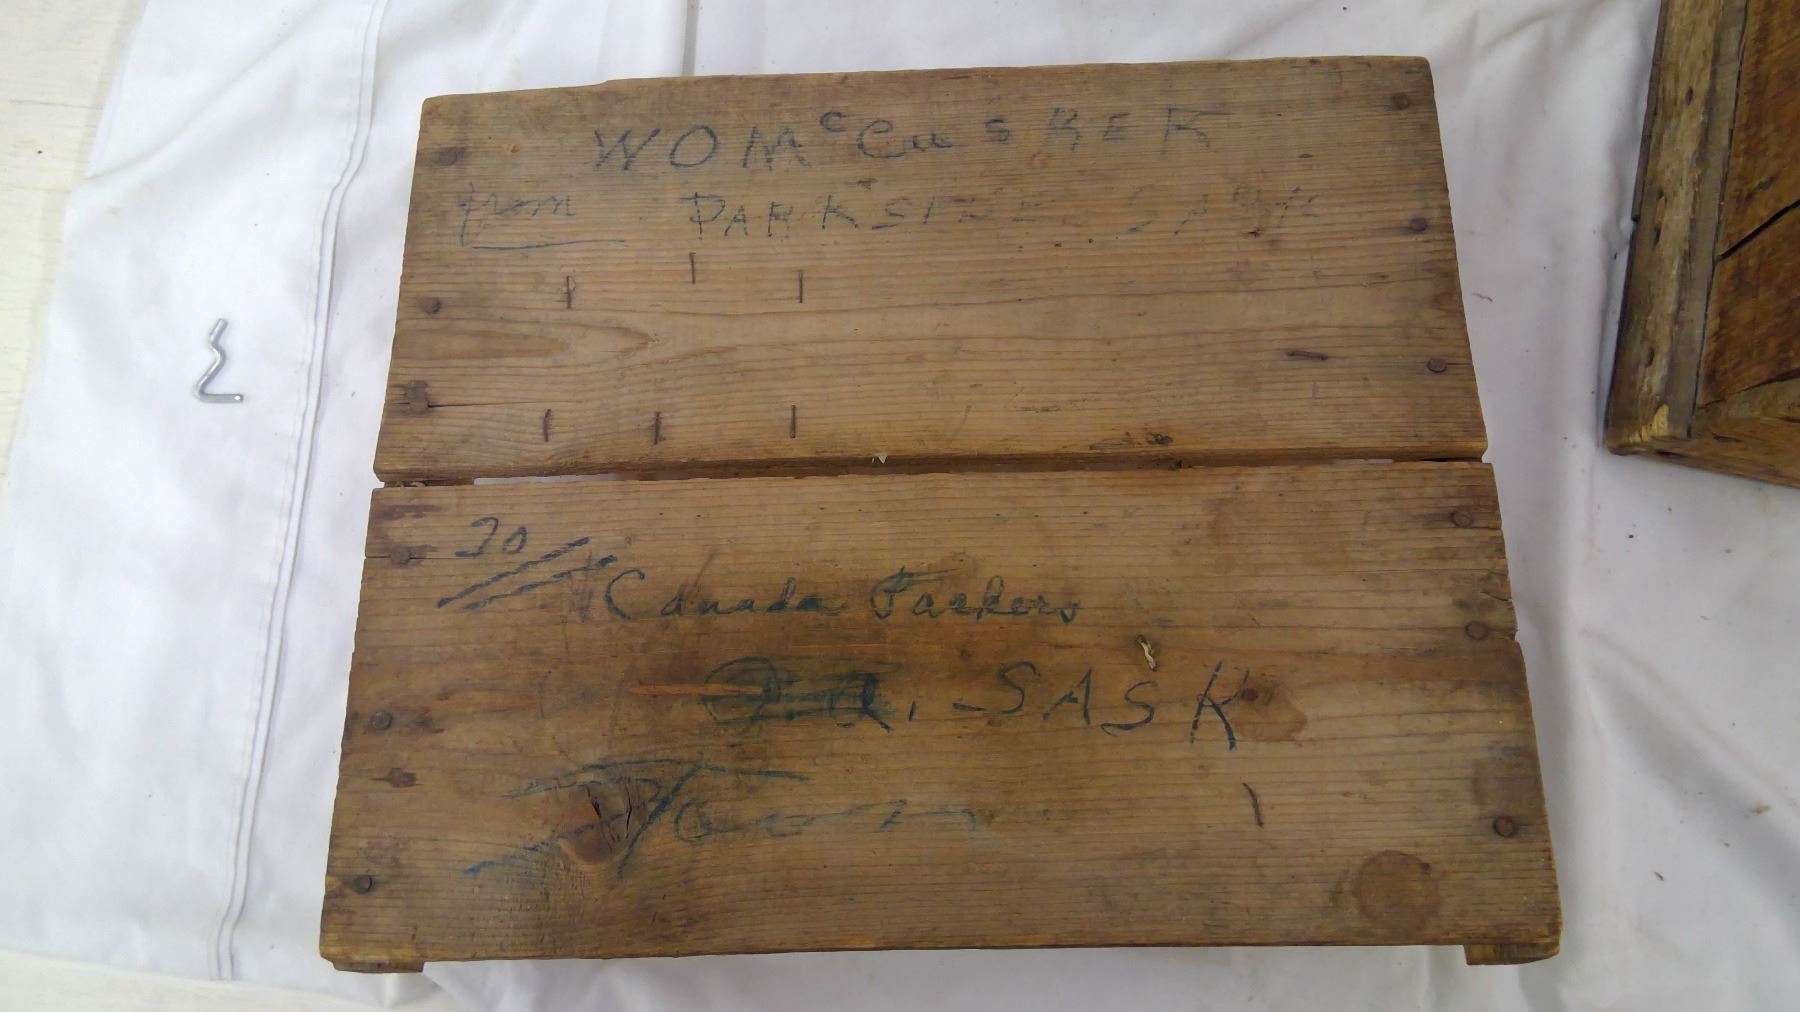 W O McCusker
from PARKSIDE SASK
To
Canada Packers
P.A. - SASK